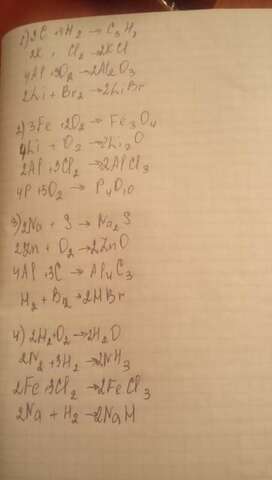 1) 3C + 4H₂ → C₃H₈
2K + Cl₂ → 2KCl
4Al + 3O₂ → 2Al₂O₃
2Li + Br₂ → 2LiBr
2) 3Fe + 2O₂ → Fe₃O₄
4Li + O₂ → 2Li₂O
2Al + 3Cl₂ → 2AlCl₃
4P + 5O₂ → P₄O₁₀
3) 2Na + S → Na₂S
2Zn + O₂ → 2ZnO
4Al + 3C → Al₄C₃
H₂ + Br₂ → 2HBr
4) 2H₂ + O₂ → 2H₂O
2N₂ + 3H₂ → 2NH₃
2Fe + 3Cl₂ → 2FeCl₃
2Na + H₂ → 2NaH